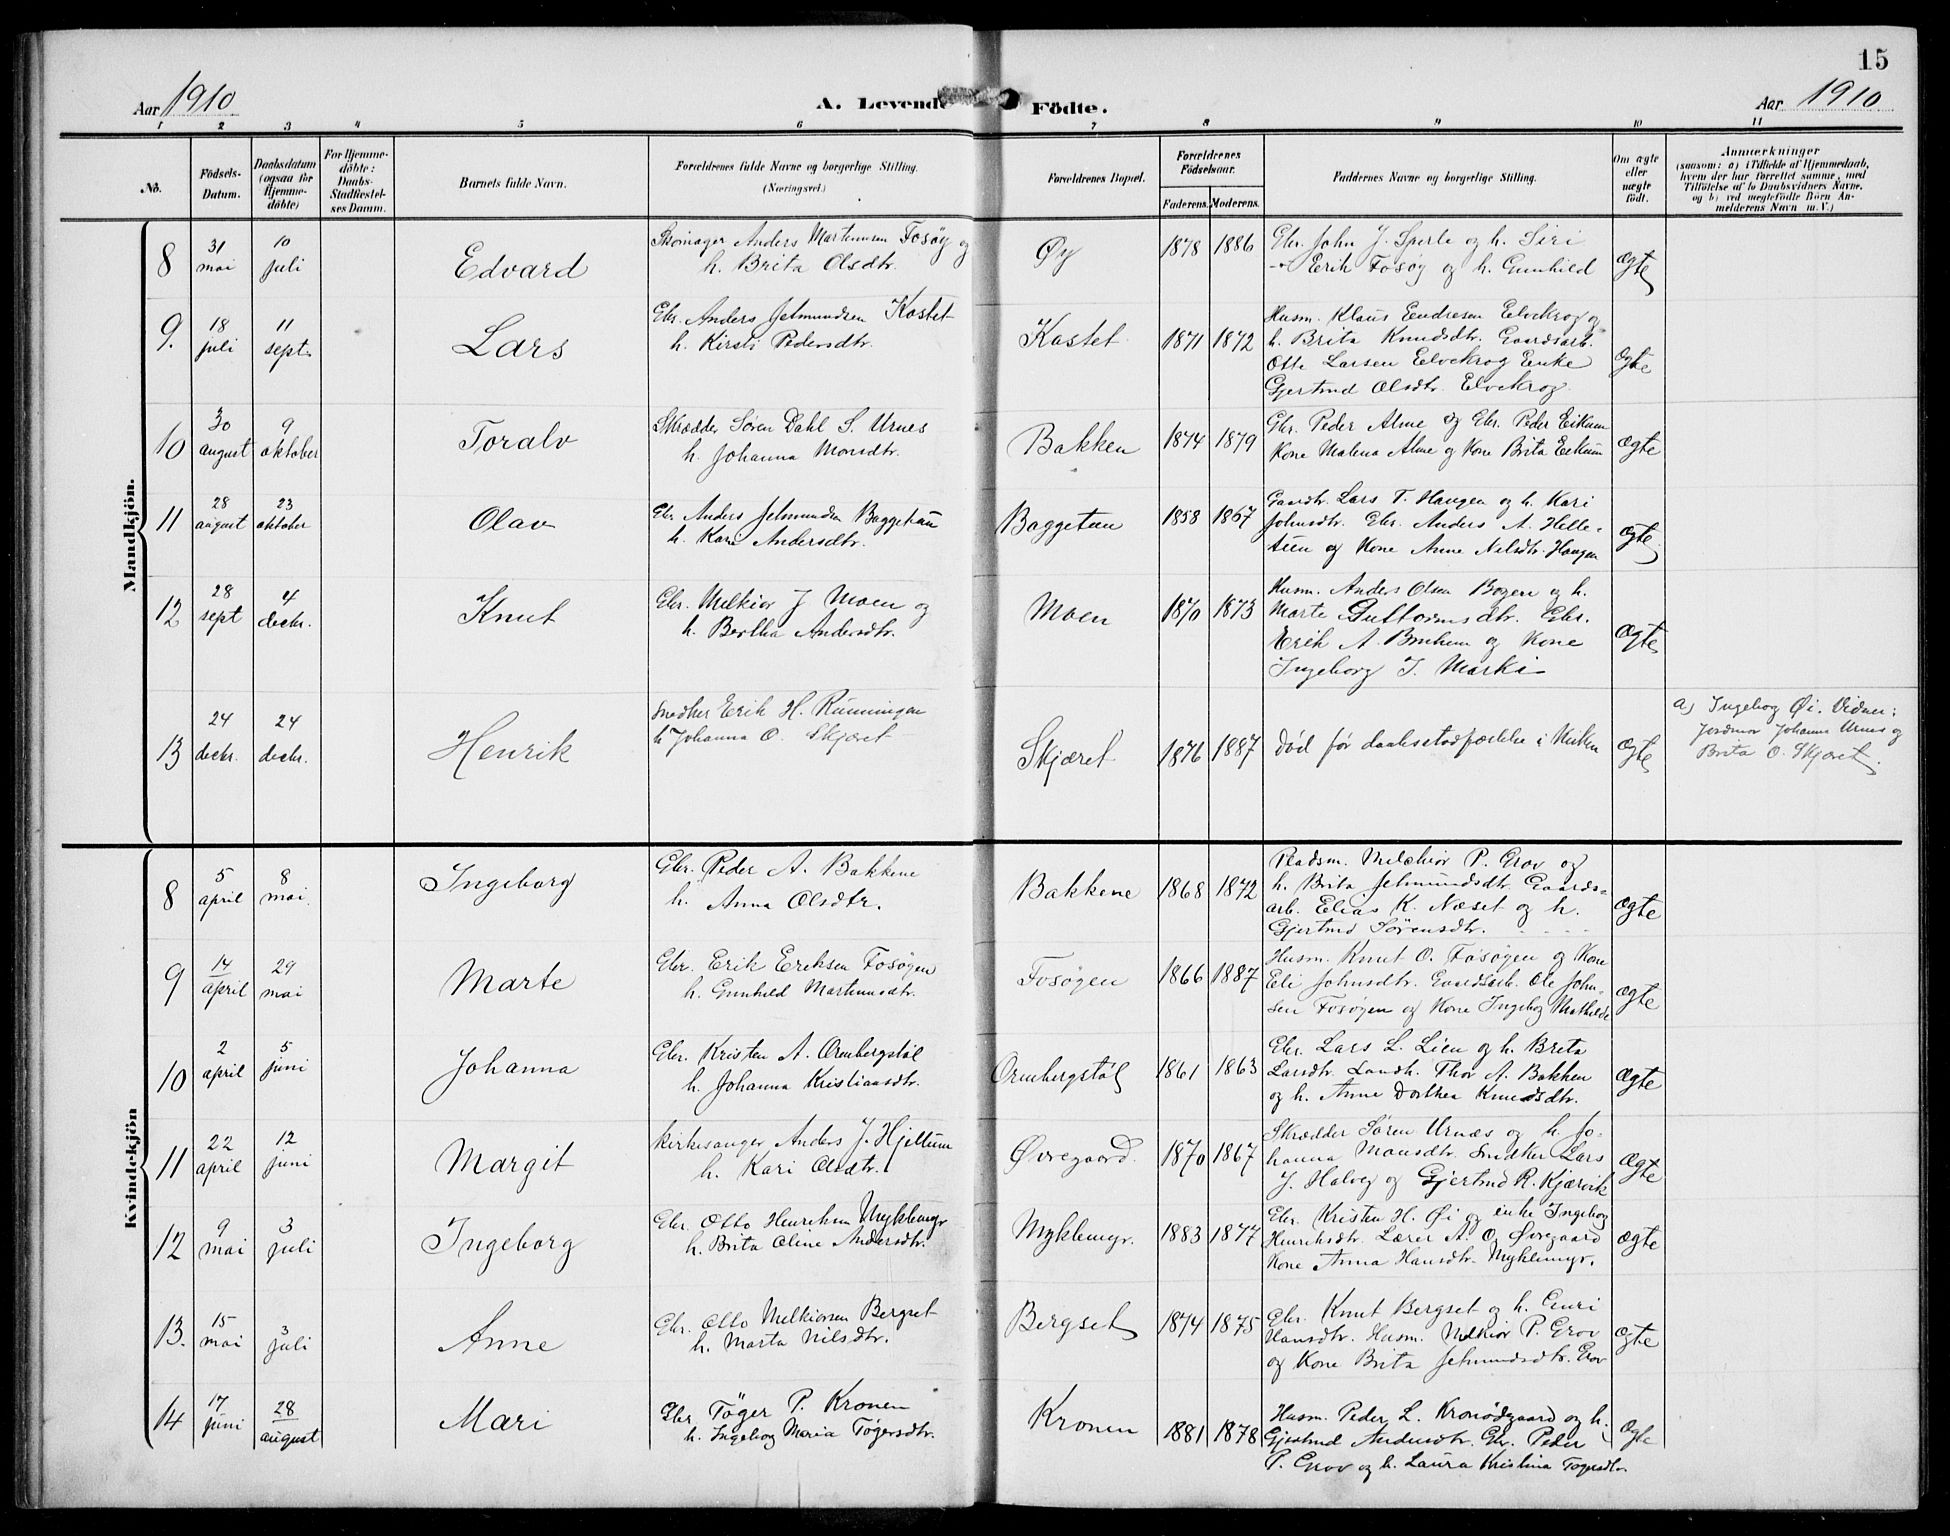 15
Aar 1910
A. Levende Födte.
Aar 1910
1 2 3 4 5 6 7 8 9 10 11
No.
Födsels-Datum.
Daabsdatum (ogsaa for Hjemme-döbte)
For Hjemme-döbte: Daabs-Stadfæstel-ses Datum.
Barnets fulde Navn.
Forældrenes fulde Navne og borgerlige Stilling. (Næringsvei.)
Forældrenes Bopæl.
Forældrenes Födselsaar.
Faderens. Moderens.
Faddernes Navne og borgerlige Stilling.
Om ægte eller uægte födt.
Anmærkninger
(saasom: a) i Tilfælde af Hjemmedaab,
hvem der har forrettet samme, med
Tilföielse af to Daabsvidners Navne,
og b) ved uægtefödte Börn An-
melderens Navn m. V.)
Mandkjön.
8
31 mai
10 juli
Edvard
Skomager Anders Martinusen Fosøy og
h. Brita Olsdtr.
Øy
1878 1886
Gbr. John J. Sperle og h. Siri
Erik Fosøy og h. Gunhild
Ægte
9.
18 juli
11 sept.
Lars
Gbr. Anders Jetmundsen Kastet
h. Kirsti Pedersdtr.
Kastet
1871 1872
Husm. Klaus Endresen Elvekrog og
h. Brita Knudsdtr. Gaardsarb.
Otte Larsen Elvekrog Enke
Gjertrud Olsdtr. Elvekrog.
Ægte
10
30 august
9 oktober
Toralv
Skrædder Søren Dahl S. Urnes
h. Johanna Monsdtr.
Bakken
1874 1879
Gbr. Peder Alme og Gbr. Peder Eikum
Kone Malena Alme og Kone Brita Eikum
Ægte
11
28 august
23 oktober
Olav
Gbr Anders Jetmundsen Baggetun
h. Kari Andersdtr.
Baggetun
1858 1867
Gaardbr. Lars T. Haugen og h. Kari
Johnsdtr. Gbr. Anders A. Helle-
tun og Kone Anne Nilsdtr. Haugen
Ægte
12
28 sept
4 decbr.
Knut
Gbr. Melkior J Moen og
h. Bertha Andersdtr.
Moen
1870 1873
Husm. Anders Olsen Bogen og h.
Marte Guttormsdtr. Gbr.
Erik A. Bruhem og Kone
Ingeborg J. Marki
Ægte
13
24 decbr.
24 decbr.
Henrik
Snedker Erik H. Rumningen
h Johanna O. Skjæret
Skjæret
1876 1887
død før daabsstadfæstelse i Kirken
Ægte
a) Ingeborg Øi. Vidner:
Jordmor Johanna Urnes og
Brita O. Skjæret.
Kvindekjön
8
5 april
8 mai.
Ingeborg
Gbr. Peder A. Bakkene
h. Anna Olsdtr.
Bakkene
1868 1872
Pladsm. Melchior P. Grov og
h. Brita Jetmundsdtr. Gaards-
arb. Elias K. Næset og h.
Gjertrud Sørensdtr.
Ægte
9
14 april
29 mai
Marte
Gbr. Erik Eriksen Fosøyen
h. Gunhild Martinusdtr.
Fosøyen
1866 1887
Husm. Knut O. Fosøyen og Kone
Eli Johnsdtr. Gaardsarb. Ole John-
sen Fosøyen og Kone Ingebor Mathilde
Ægte
10
2 april
5 juni
Johanna
Gbr. Kristen A. Ormbergstøl
h. Johanna Kristiansdtr.
Ormbergstøl
1861 1863
Gbr. Lars L. Lien og h. Brita
Larsdtr. Landh. Thor A. Bakken
og h. Anne Dorthea Knudsdtr.
Ægte
11
22 april
12 juni
Margit
Kirkesanger Anders J. Hjeltum
h. Kari Olsdtr.
Øvregaard.
1870 1867
Skrædder Søren Urnæs og h. Jo-
hanna Monsdtr. Snedker Lars
J. Halveg og Gjertrud R. Kjærvik
Ægte
12
9 mai
3 juli
Ingeborg
Gbr. Otto Henriksen Myklemyr
h. Brita Oline Andersdtr.
Myklemyr.
1883 1877
Gbr. Kristen H. Øi og enke Ingeborg
Henriksdtr. Lærer A. O. Øvregaard
Kone Anna Hansdtr. Myklemyr.
Ægte
13.
15 mai
3 juli
Anne
Gbr. Otto Melkiorsen Bergset
h. Marta Nilsdtr.
Bergset
1874 1875
Gbr. Knut Bergset og h. Guri
Hansdtr. Husm. Melkior P. Grov
og Kone Brita Jetmundsdtr. Grov
Ægte
14
17 juni
28 august
Mari
Gbr. Tøger P. Kronen
h. Ingeborg Maria Tøgersdtr.
Kronen
1881 1878
Husm. Peder L. Kronødgaard og h.
Gjertrud Andersdtr. Gbr. Peder
P. Grov og h. Laura Kristina Tøgersdtr.
Ægte